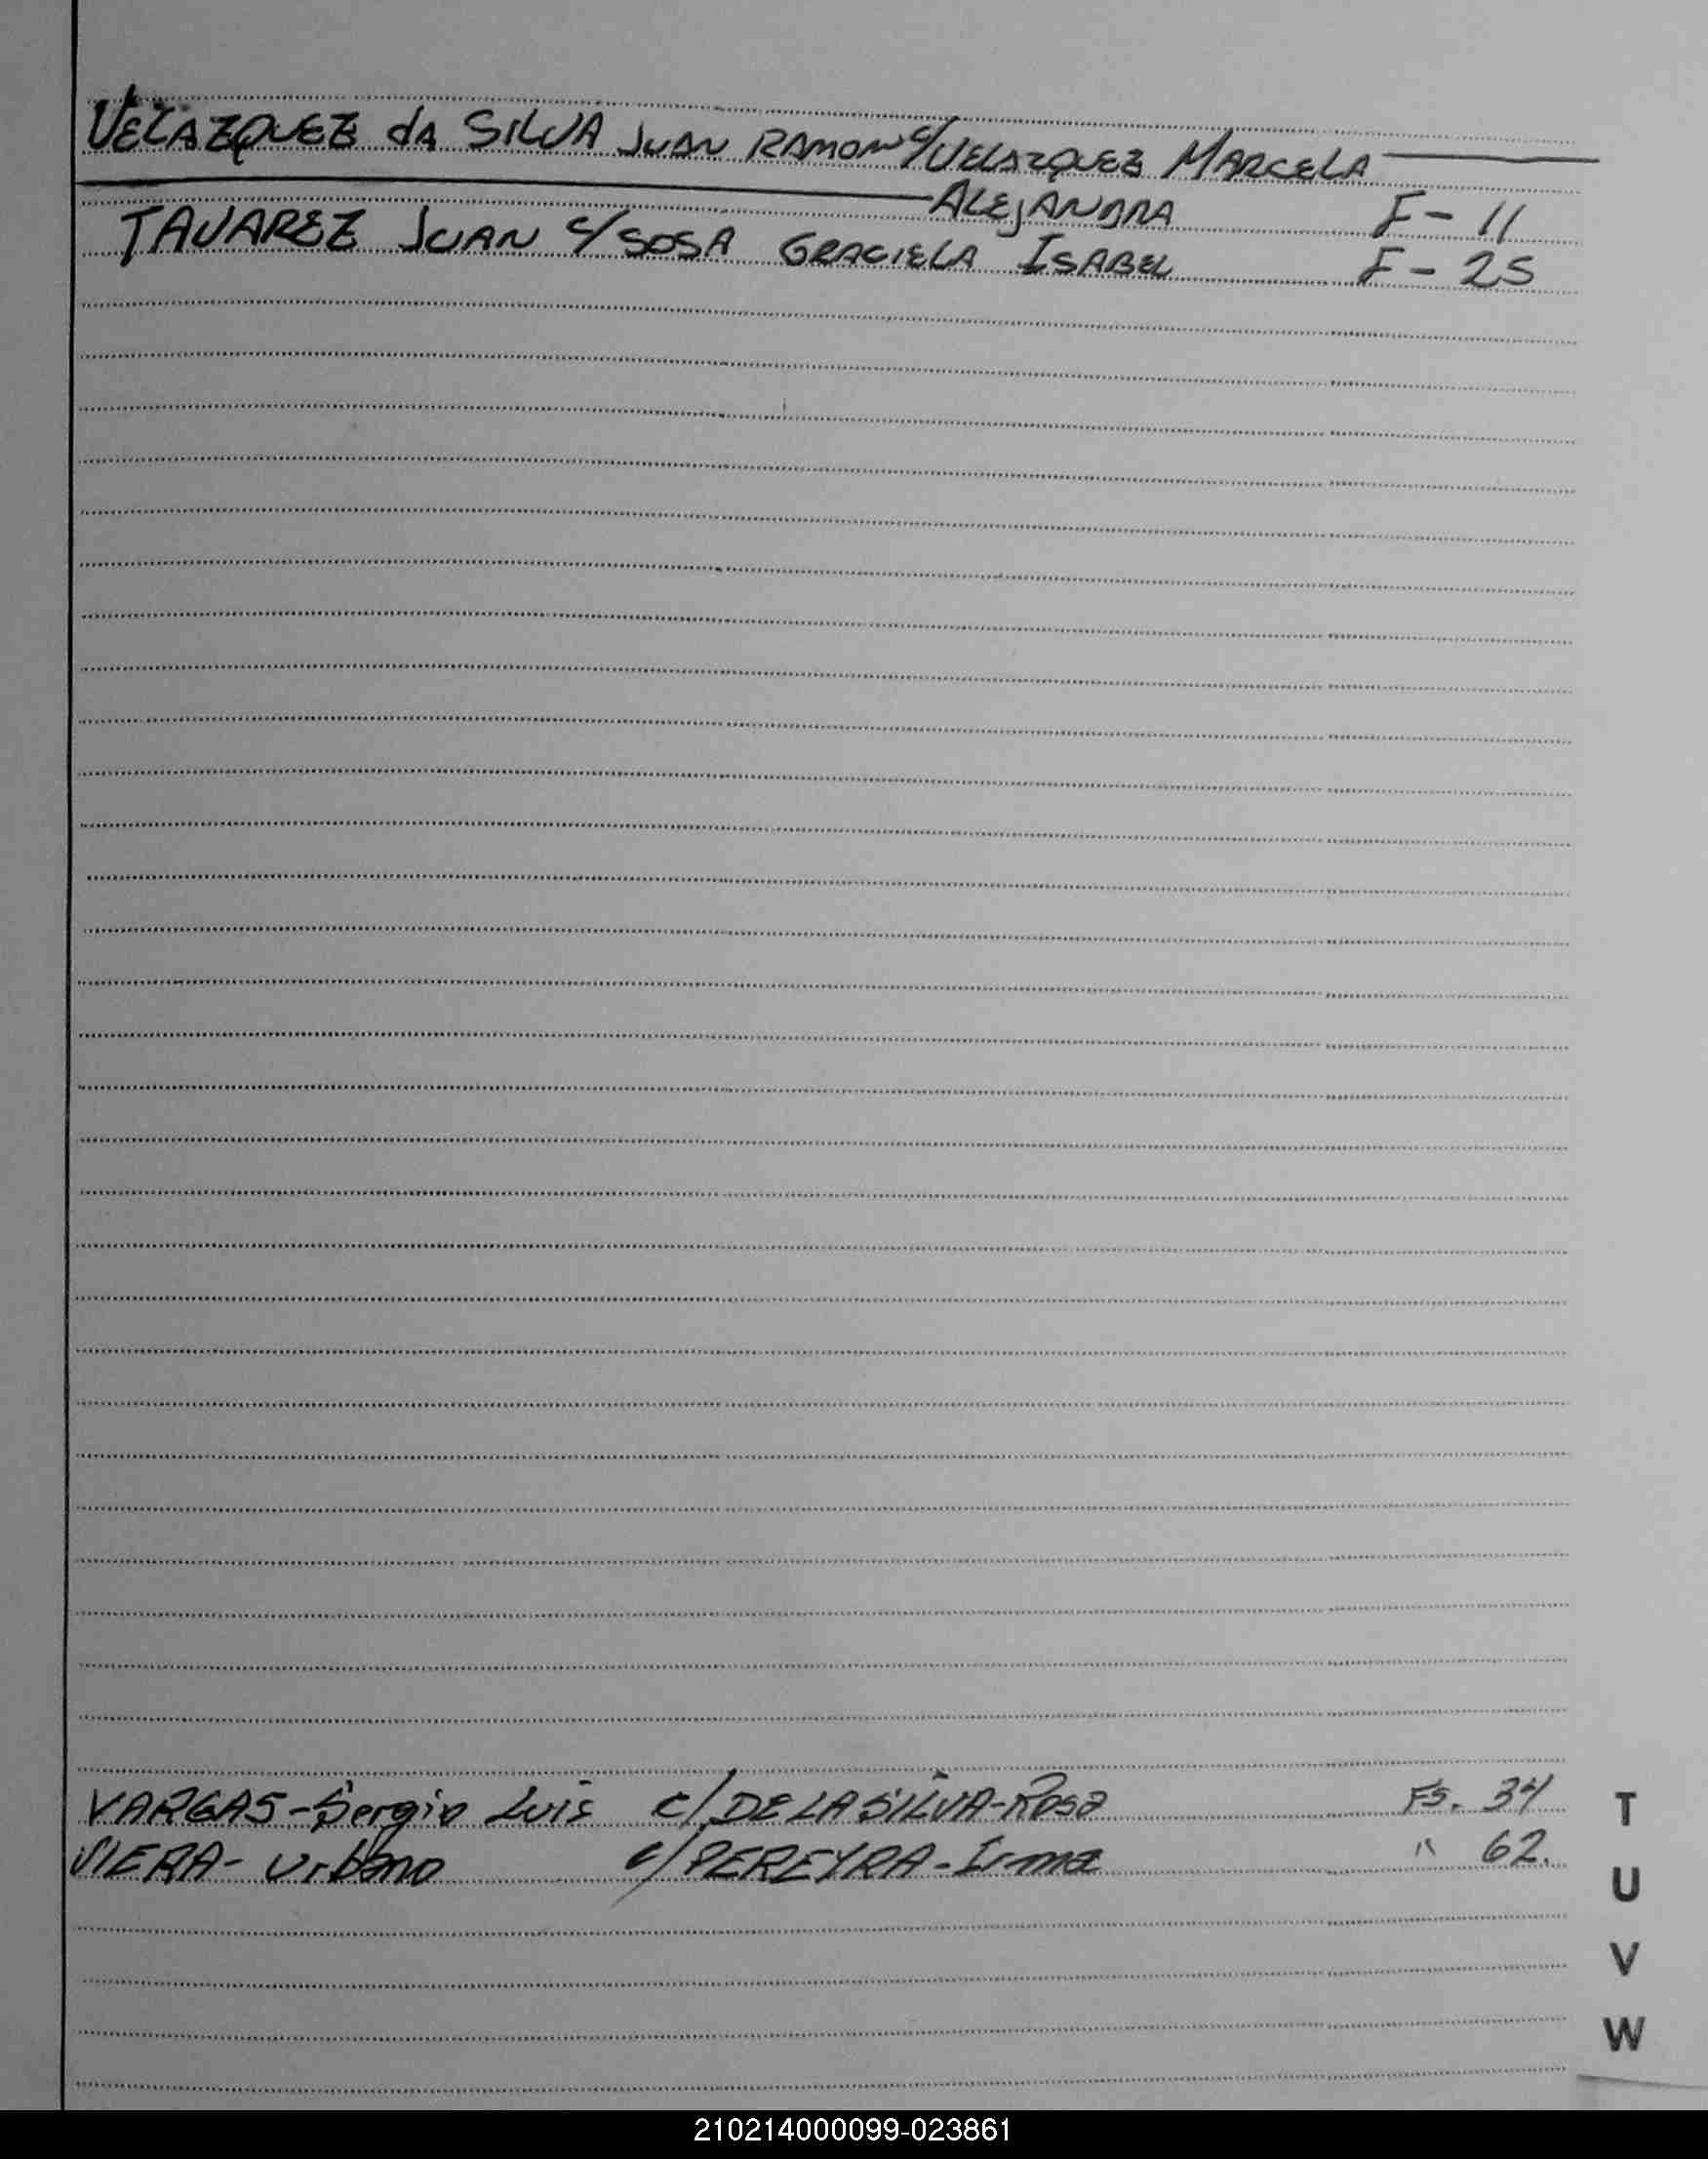 VELAZQUEZ dA SILVA JUAN RAMON c/VELAZQUEZ MARCELA
ALEJANDRA F- 11
TAVAREZ JUAN c/SOSA GRACIELA ISABEL F- 25
VARGAS-Sergio Luis c/DE LA SILVA-Rosa Fs. 34
VIERA- Urbano c/PEREYRA-Irma " 62.
T
U
V
W
210214000099-023861